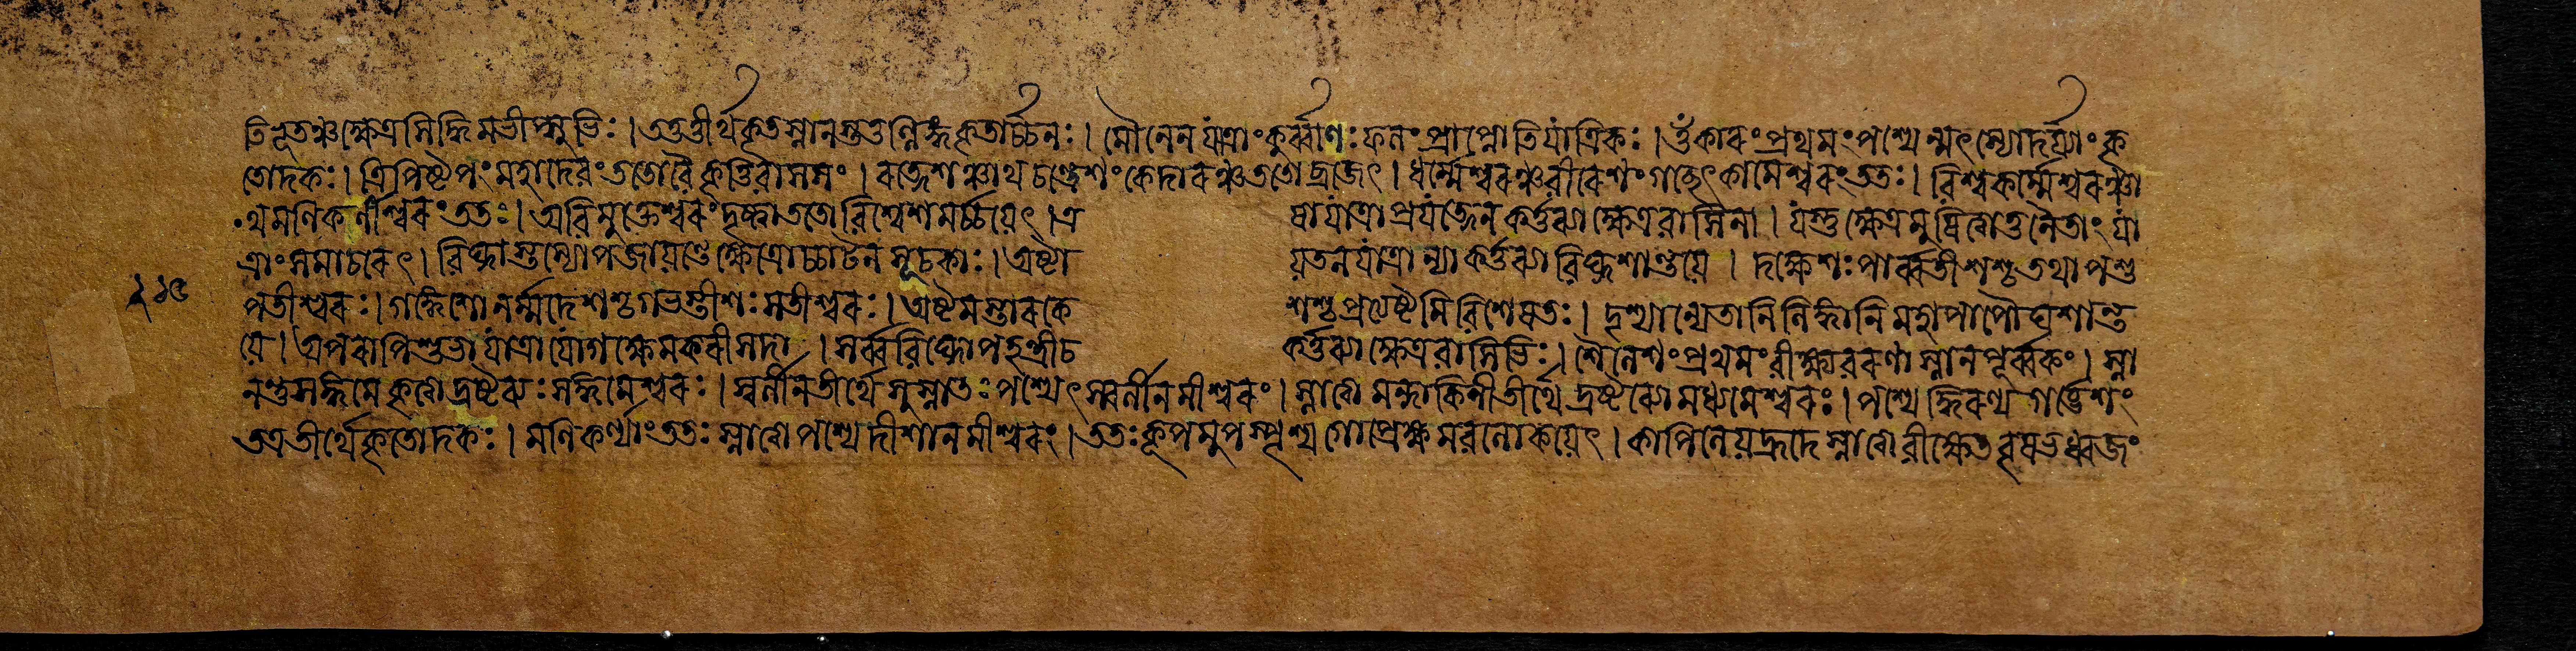 তিপূতঞ্চক্ষেত্রসিদ্ধিমভীপ্সুভিঃ। তত্তত্তীর্থকৃতস্নানস্তত্তল্লিঙ্গকৃতার্চ্চনঃ। মৌনেনযাত্রাংকুর্ব্বাণঃফলংপ্রাপ্নোতিযাত্রিকঃ। ওঁকারংপ্রথমংপশ্যেন্মৎস্যোদর্য্যাংকৃ
তোদকঃ। ত্রিপিষ্টপংমহাদেবংততোবৈকৃত্তিবাসসং। রত্নেশঞ্চাথচন্দ্রেশংকেদারঞ্চততোব্রজেৎ। ধর্ম্মেশ্বরঞ্চবীরেশংগচ্ছেৎকামেশ্বরংততঃ। বিশ্বকর্ম্মেশ্বরঞ্চা
থমণিকর্ণীশ্বরংততঃ। অবিমুক্তেশ্বরংদৃষ্ট্বাততোবিশ্বেশমর্চ্চয়েৎ। এ ষাযাত্রাপ্রযত্নেনকর্ত্তব্যাক্ষেত্রবাসিনা। যস্তুক্ষেত্রমুষিত্বাতুনৈতাংযা
ত্রাংসমাচরেৎ। বিঘ্নাস্তস্যোপজায়ন্তেক্ষেত্রোচ্চাটনসূচকাঃ। অষ্টা য়তনযাত্রান্যাকর্ত্তব্যাবিঘ্নশান্তয়ে। দক্ষেশঃপার্ব্বতীশশ্চতথাপশু
পতীশ্বরঃ। গঙ্গেশোনর্ম্মদেশশ্চগভস্তীশঃসতীশ্বরঃ। অষ্টমস্তারকে শশ্চপ্রত্যষ্টমিবিশেষতঃ। দৃশ্যান্যেতানিলিঙ্গানিমহাপাপৌঘশান্ত
য়ে। অপরাপিশুভাযাত্রাযোগক্ষেমকরীসদা। সর্ব্ববিঘ্নোপহন্ত্রীচ কর্ত্তব্যাক্ষেত্রবাসিভিঃ। শৈলেশংপ্রথমংবীক্ষ্যবরণাস্নানপূর্ব্বকং। স্না
নন্তুসঙ্গমেকৃত্বাদ্রষ্টব্যঃসঙ্গমেশ্বরঃ। স্বর্লীনতীর্থেসুস্নাতঃপশ্যেৎস্বর্লীনমীশ্বরং। স্নাত্বামন্দাকিনীতীর্থেদ্রষ্টব্যোমধ্যমেশ্বরঃ। পশ্যেদ্ধিরণ্যগর্ভেশং
তত্রতীর্থেকৃতোদকঃ। মণিকর্ণ্যাংততঃস্নাত্বাপশ্যেদীশানমীশ্বরং। ততঃকূপমুপস্পৃশ্যগোপ্রেক্ষমবলোকয়েৎ। কাপিলেয়হ্রদেস্নাত্বাবীক্ষেতবৃষভধ্বজং